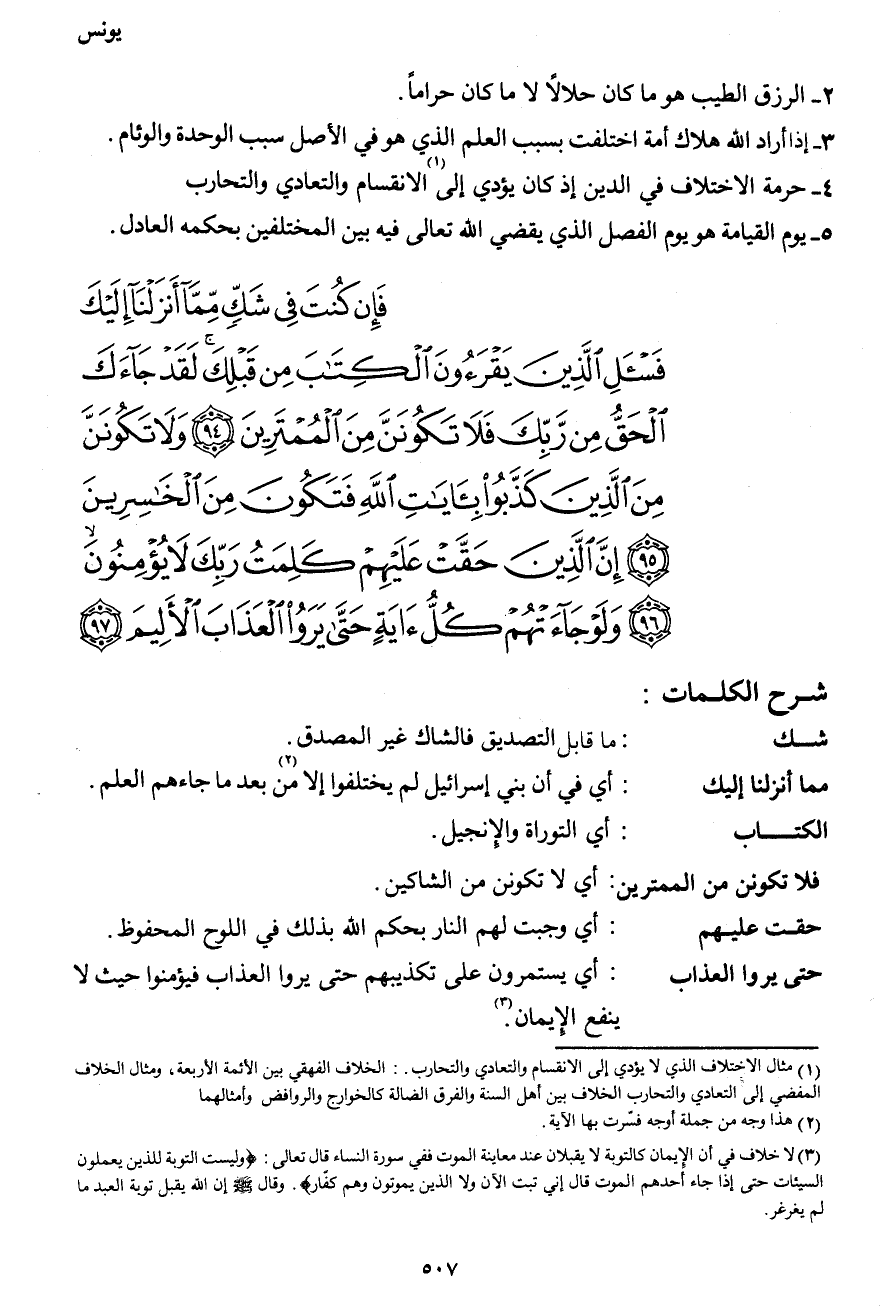 يونس
٢ـ الرزق الطيب هو ما كان حلالاً لا ما كان حراماً.
٣ـ إذا أراد الله هلاك أمة اختلفت بسبب العلم الذي هو في الأصل سبب الوحدة والوئام.
٤ـ حرمة الاختلاف في الدين إذ كان يؤدي إلى(١) الانقسام والتعادي والتحارب
٥ـ يوم القيامة هو يوم الفصل الذي يقضي الله تعالى فيه بين المختلفين بحكمه العادل.
فَإِن كُنتَ فِى شَكٍّ مِّمَّآ أَنزَلْنَآ إِلَيْكَ
فَسْـَٔلِ ٱلَّذِينَ يَقْرَءُونَ ٱلْكِتَـٰبَ مِن قَبْلِكَ ۚ لَقَدْ جَآءَكَ
ٱلْحَقُّ مِن رَّبِّكَ فَلَا تَكُونَنَّ مِنَ ٱلْمُمْتَرِينَ ٩٤ وَلَا تَكُونَنَّ
مِنَ ٱلَّذِينَ كَذَّبُوا۟ بِـَٔايَـٰتِ ٱللَّهِ فَتَكُونَ مِنَ ٱلْخَـٰسِرِينَ
٩٥ إِنَّ ٱلَّذِينَ حَقَّتْ عَلَيْهِمْ كَلِمَتُ رَبِّكَ لَا يُؤْمِنُونَ ۙ
٩٦ وَلَوْ جَآءَتْهُمْ كُلُّ ءَايَةٍ حَتَّىٰ يَرَوُا۟ ٱلْعَذَابَ ٱلْأَلِيمَ ٩٧
شرح الكلمات :
شك : ما قابل التصديق فالشاك غير المصدق.
مما أنزلنا إليك : أي في أن بني إسرائيل لم يختلفوا إلا(٢) من بعد ما جاءهم العلم.
الكتاب : أي التوراة والإنجيل.
فلا تكونن من الممترين: أي لا تكونن من الشاكين.
حقت عليهم : أي وجبت لهم النار بحكم الله بذلك في اللوح المحفوظ.
حتى يروا العذاب : أي يستمرون على تكذيبهم حتى يروا العذاب فيؤمنوا حيث لا
ينفع الإيمان.(٣)
(١) مثال الاختلاف الذي لا يؤدي إلى الانقسام والتعادي والتحارب. : الخلاف الفقهي بين الأئمة الأربعة، ومثال الخلاف
المفضي إلى التعادي والتحارب الخلاف بين أهل السنة والفرق الضالة كالخوارج والروافض وأمثالهما
(٢) هذا وجه من جملة أوجه فسّرت بها الآية.
(٣) لا خلاف في أن الإيمان كالتوبة لا يقبلان عند معاينة الموت ففي سورة النساء قال تعالى : ﴿وليست التوبة للذين يعملون
السيئات حتى إذا جاء أحدهم الموت قال إني تبت الآن ولا الذين يموتون وهم كفّار﴾. وقال ﷺ إن الله يقبل توبة العبد ما
لم يغرغر.
٥٠٧